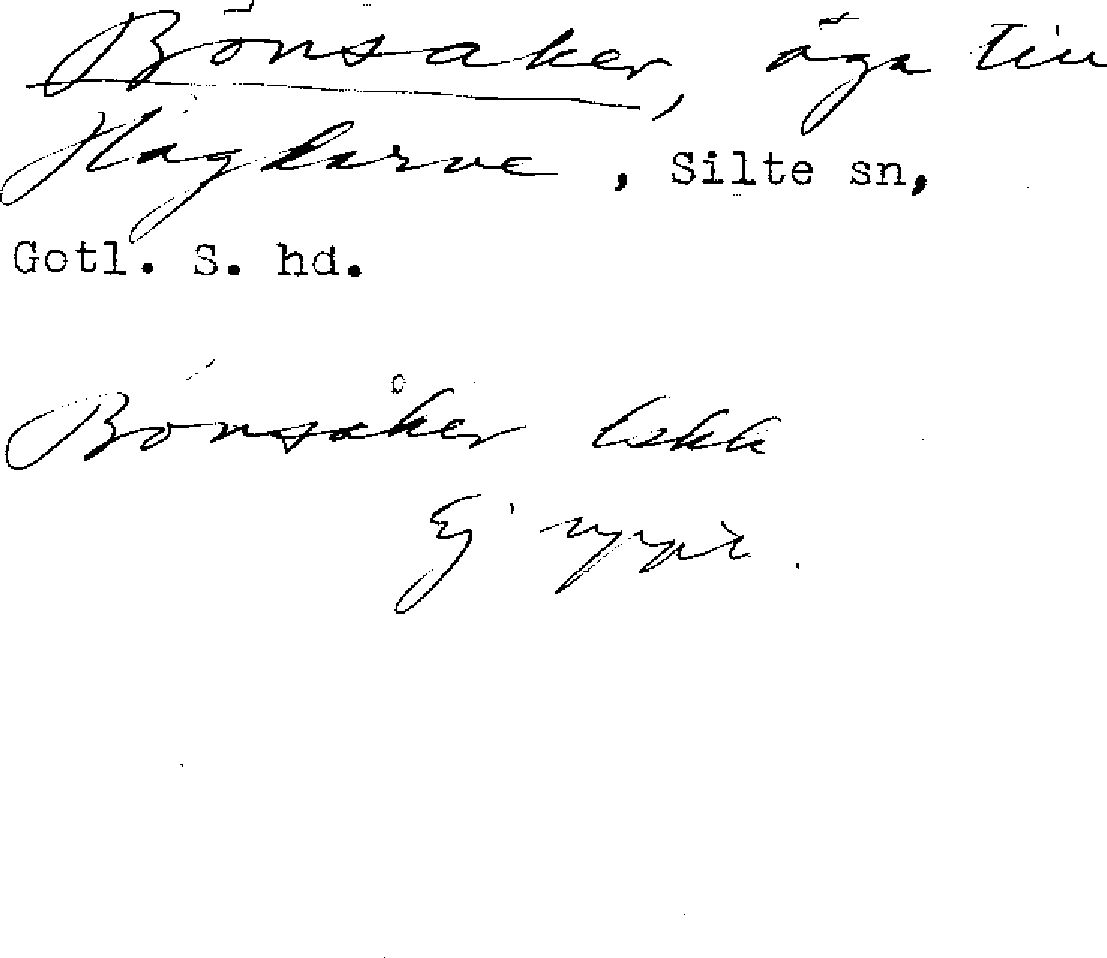 Bönsaker, äga till
Hägdarve, Silte sn,
Gotl. S. hd.
Bönsåker Lskk
Ej